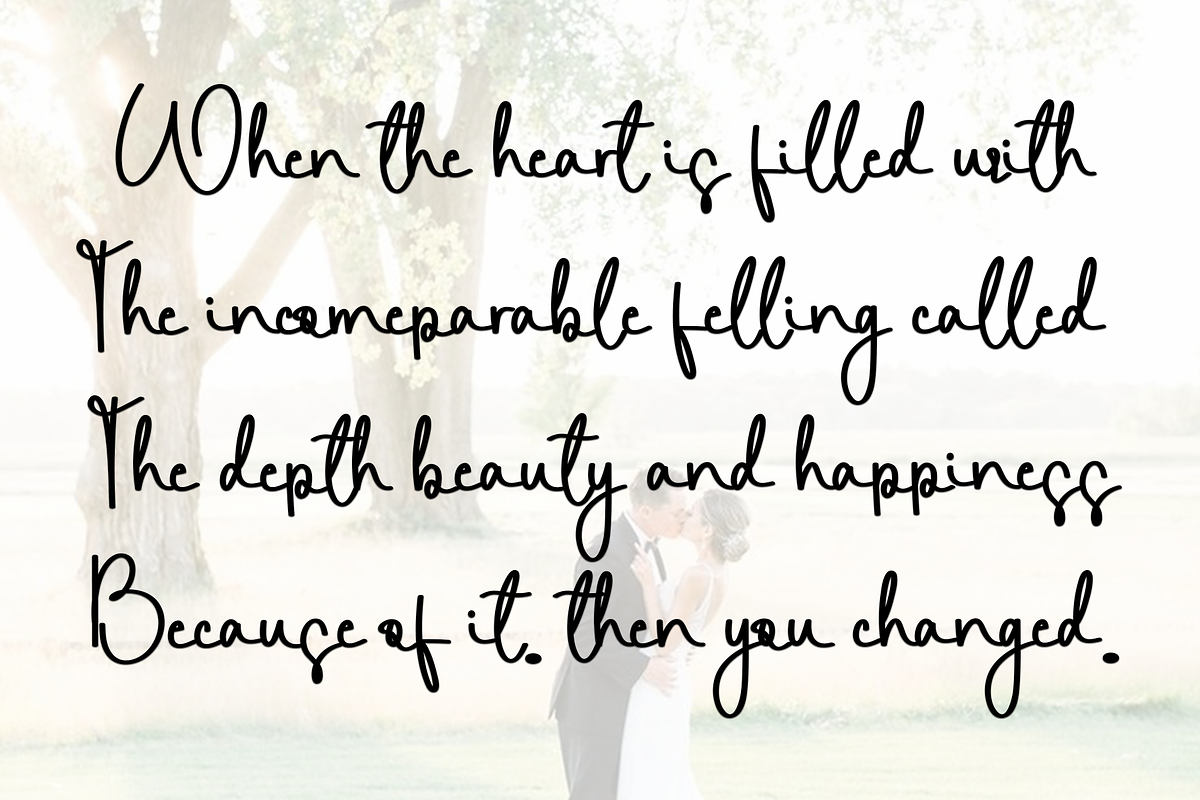 When the heart is filled with
The incomeparable felling called
The depth beauty and happiness
Because of it. then you changed.